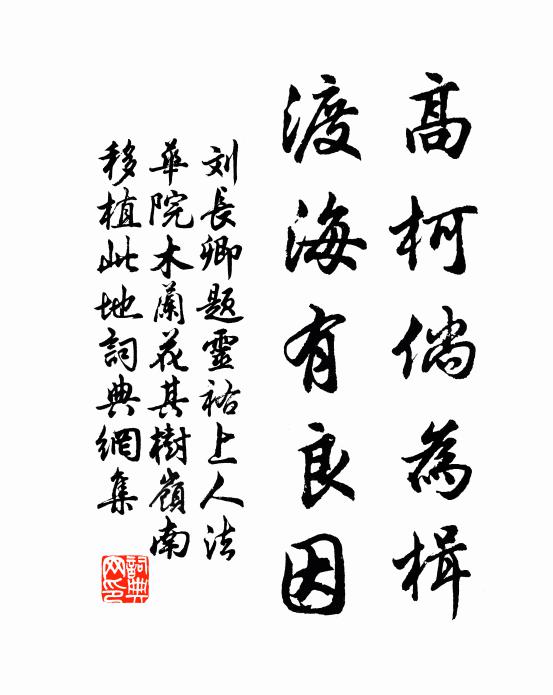 高柯倘為楫
渡海有良因
刘長卿題靈祐上人法
華院木蘭花其樹嶺南
移植此地詞典網集
詞典
网印